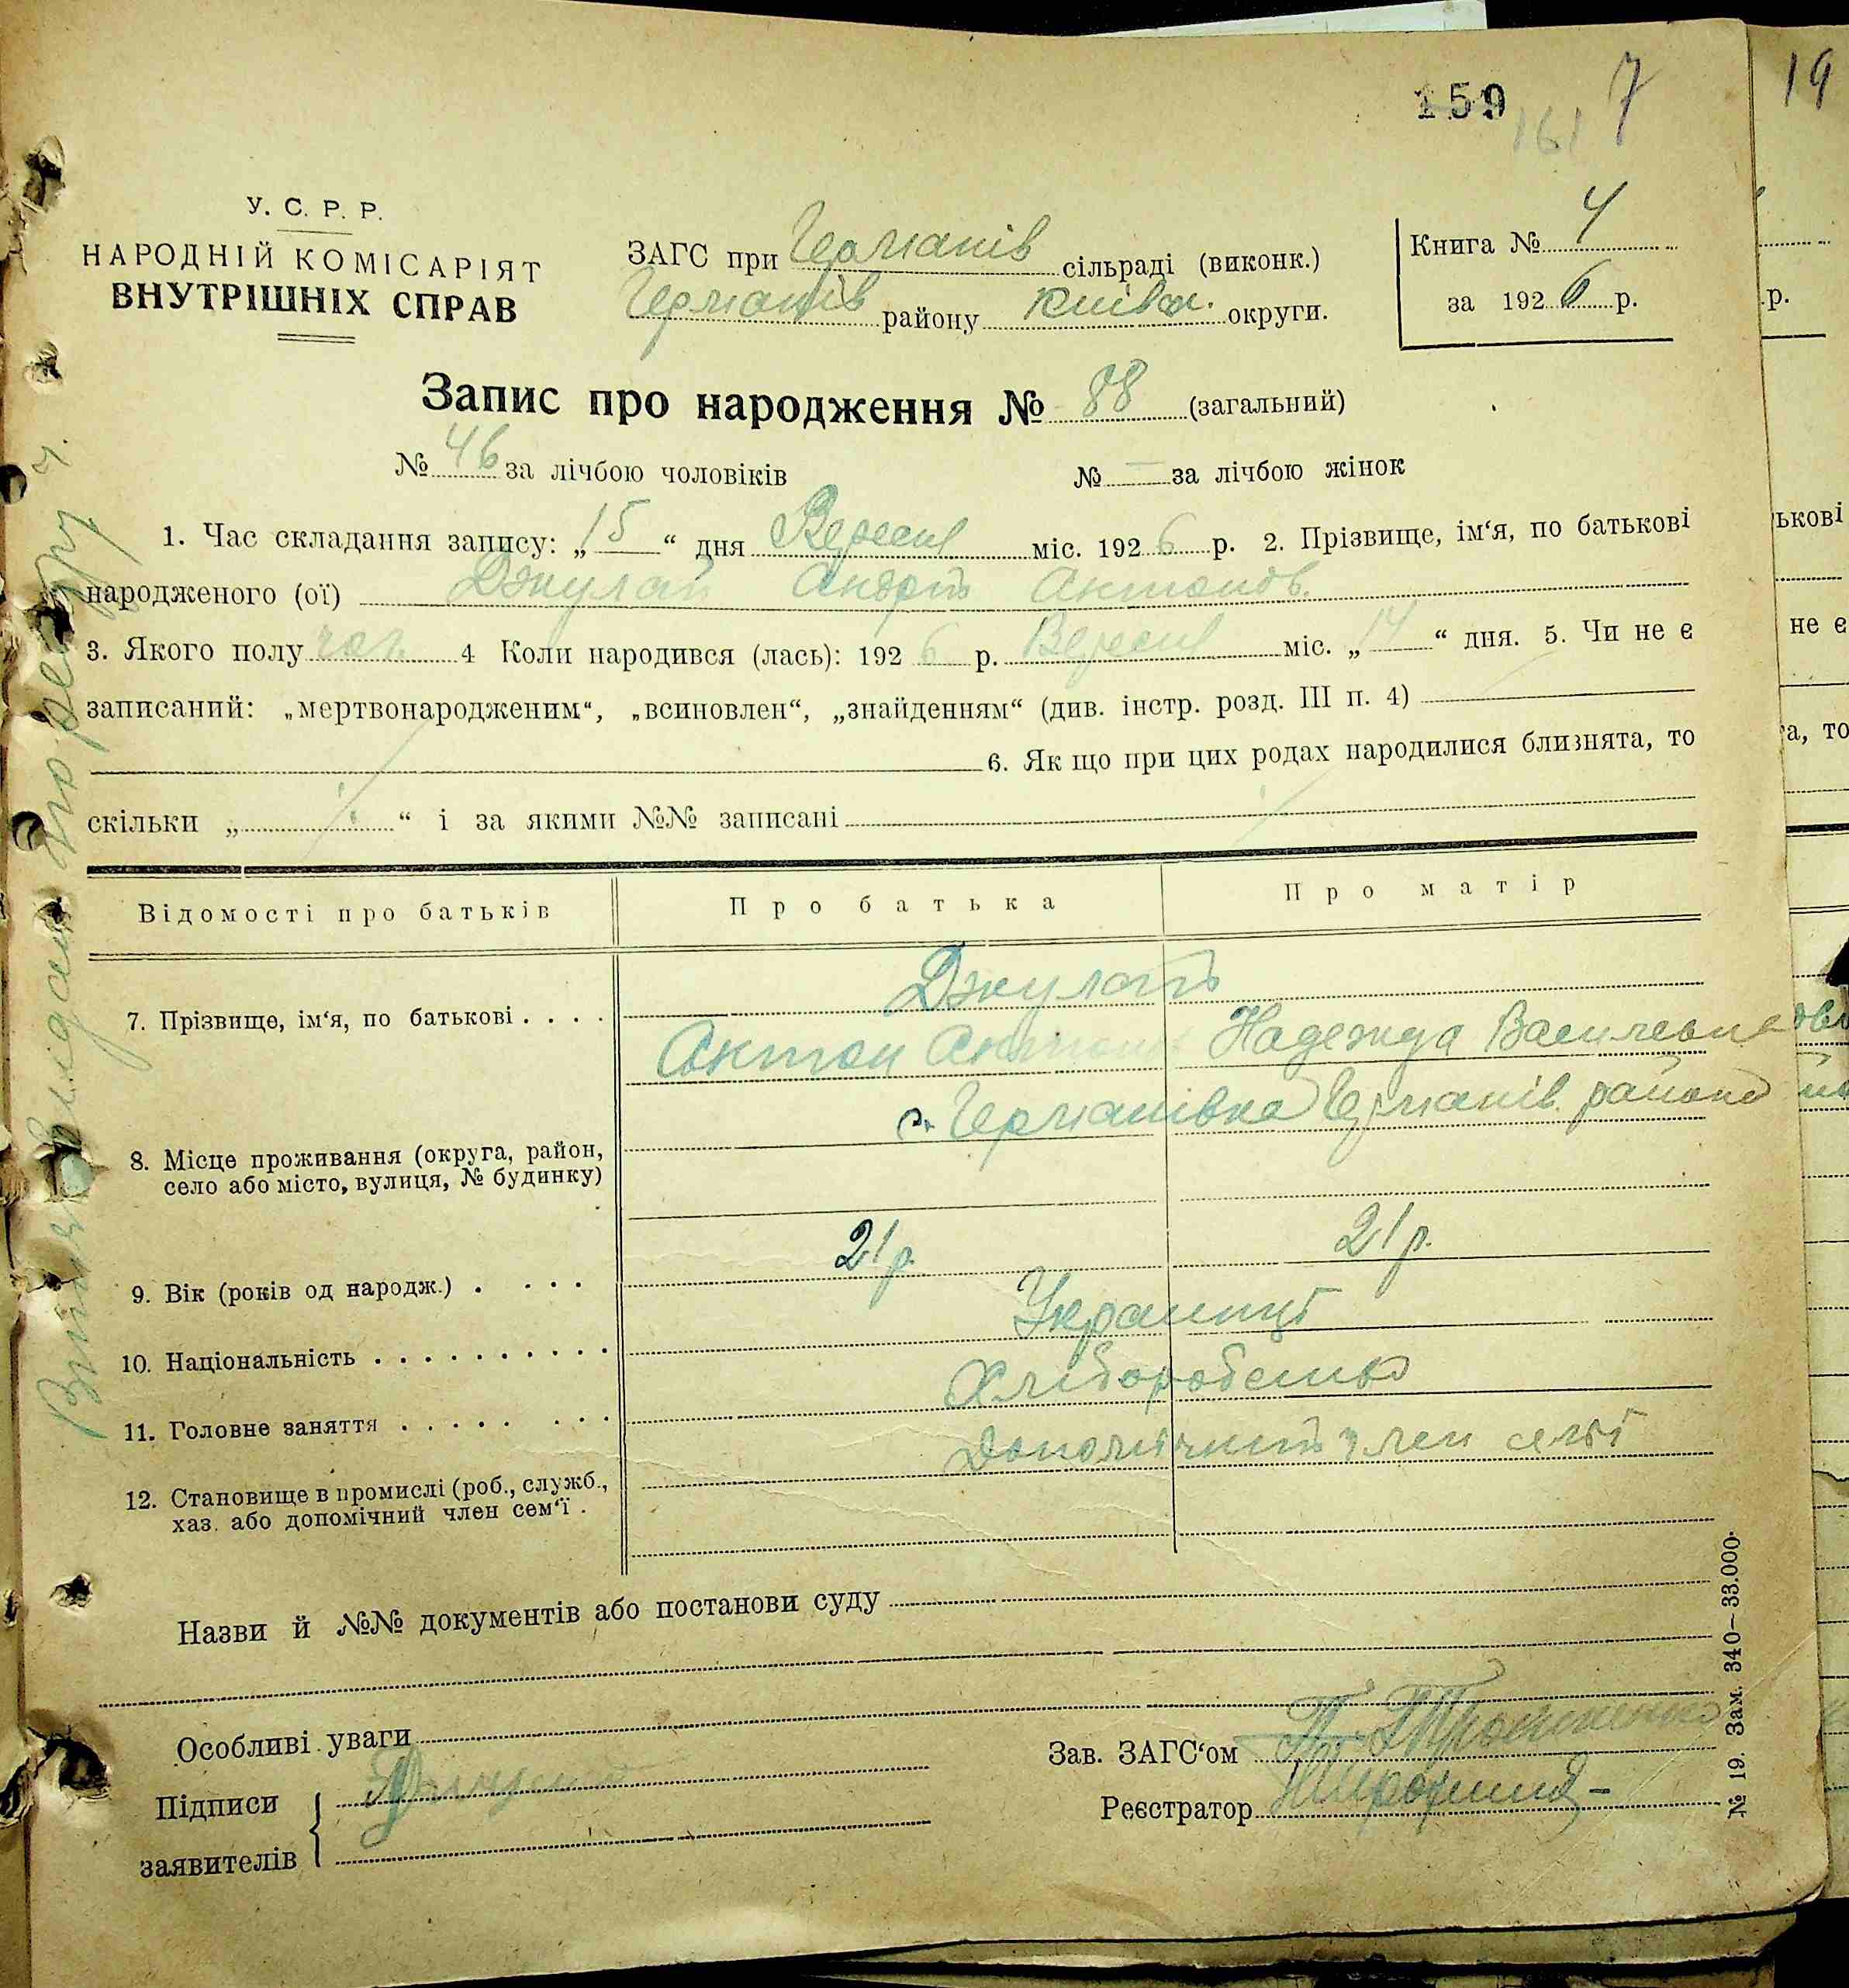 159 161 7 19
У. С. Р. Р.
НАРОДНІЙ КОМІСАРІЯТ
ВНУТРІШНІХ СПРАВ
ЗАГС при Германів сільраді (виконк.)
Германів району Київськ. округи.
Книга № 4
за 1926 р.
Запис про народження № 88 (загальний)
№ 46 за лічбою чоловіків № — за лічбою жінок
1. Час складання запису: „15“ дня Вересня міс. 1926 р. 2. Прізвище, ім‘я, по батькові
народженого (ої) Джулай Андрій Антонов.
3. Якого полу чол. 4 Коли народився (лась): 1926 р. Вересня міс. „14“ дня. 5. Чи не є
записаний: „мертвонародженим“, „всиновлен“, „знайденням“ (див. інстр. розд. III п. 4)
6. Як що при цих родах народилися близнята, то
скільки „ “ і за якими №№ записані
Відомості про батьків Про батька Про матір
Джулай
7. Прізвище, ім‘я, по батькові . . . .
Антон Надежда Васильевна
с. Германівка Германів. району
8. Місце проживання (округа, район,
село або місто, вулиця, № будинку)
21 р. 21 р.
9. Вік (років од народж.) . . . .
Українці
10. Національність . . . . . . . . . .
Хліборобство
11. Головне заняття . . . . . . . .
Допомічний член семї
12. Становище в промислі (роб., служб.,
хаз. або допомічний член сем‘ї .
Назви й №№ документів або постанови суду
Особливі уваги
Зав. ЗАГС‘ом
Підписи
Реєстратор
заявителів
№ 19. Зам. 340—33.000.
ькові
р.
не є
а, то